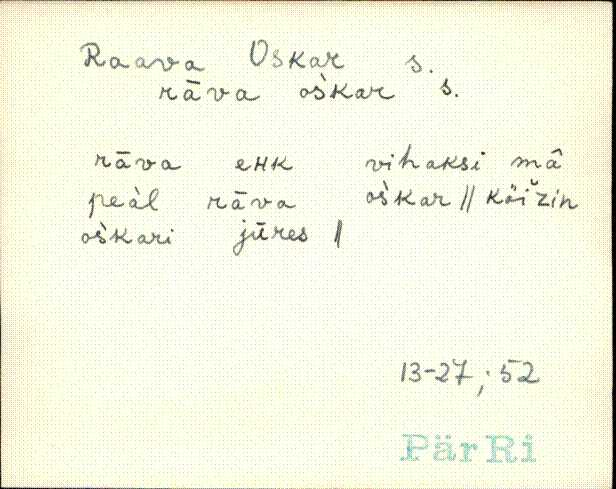 Raava Oskar s.
rāva os̀kar s.
rāva eʜk vihaksi mâ
peàl rāva os̀kar || köiz̆in
os̀kari jūres ||
13-27; 52
PärRi